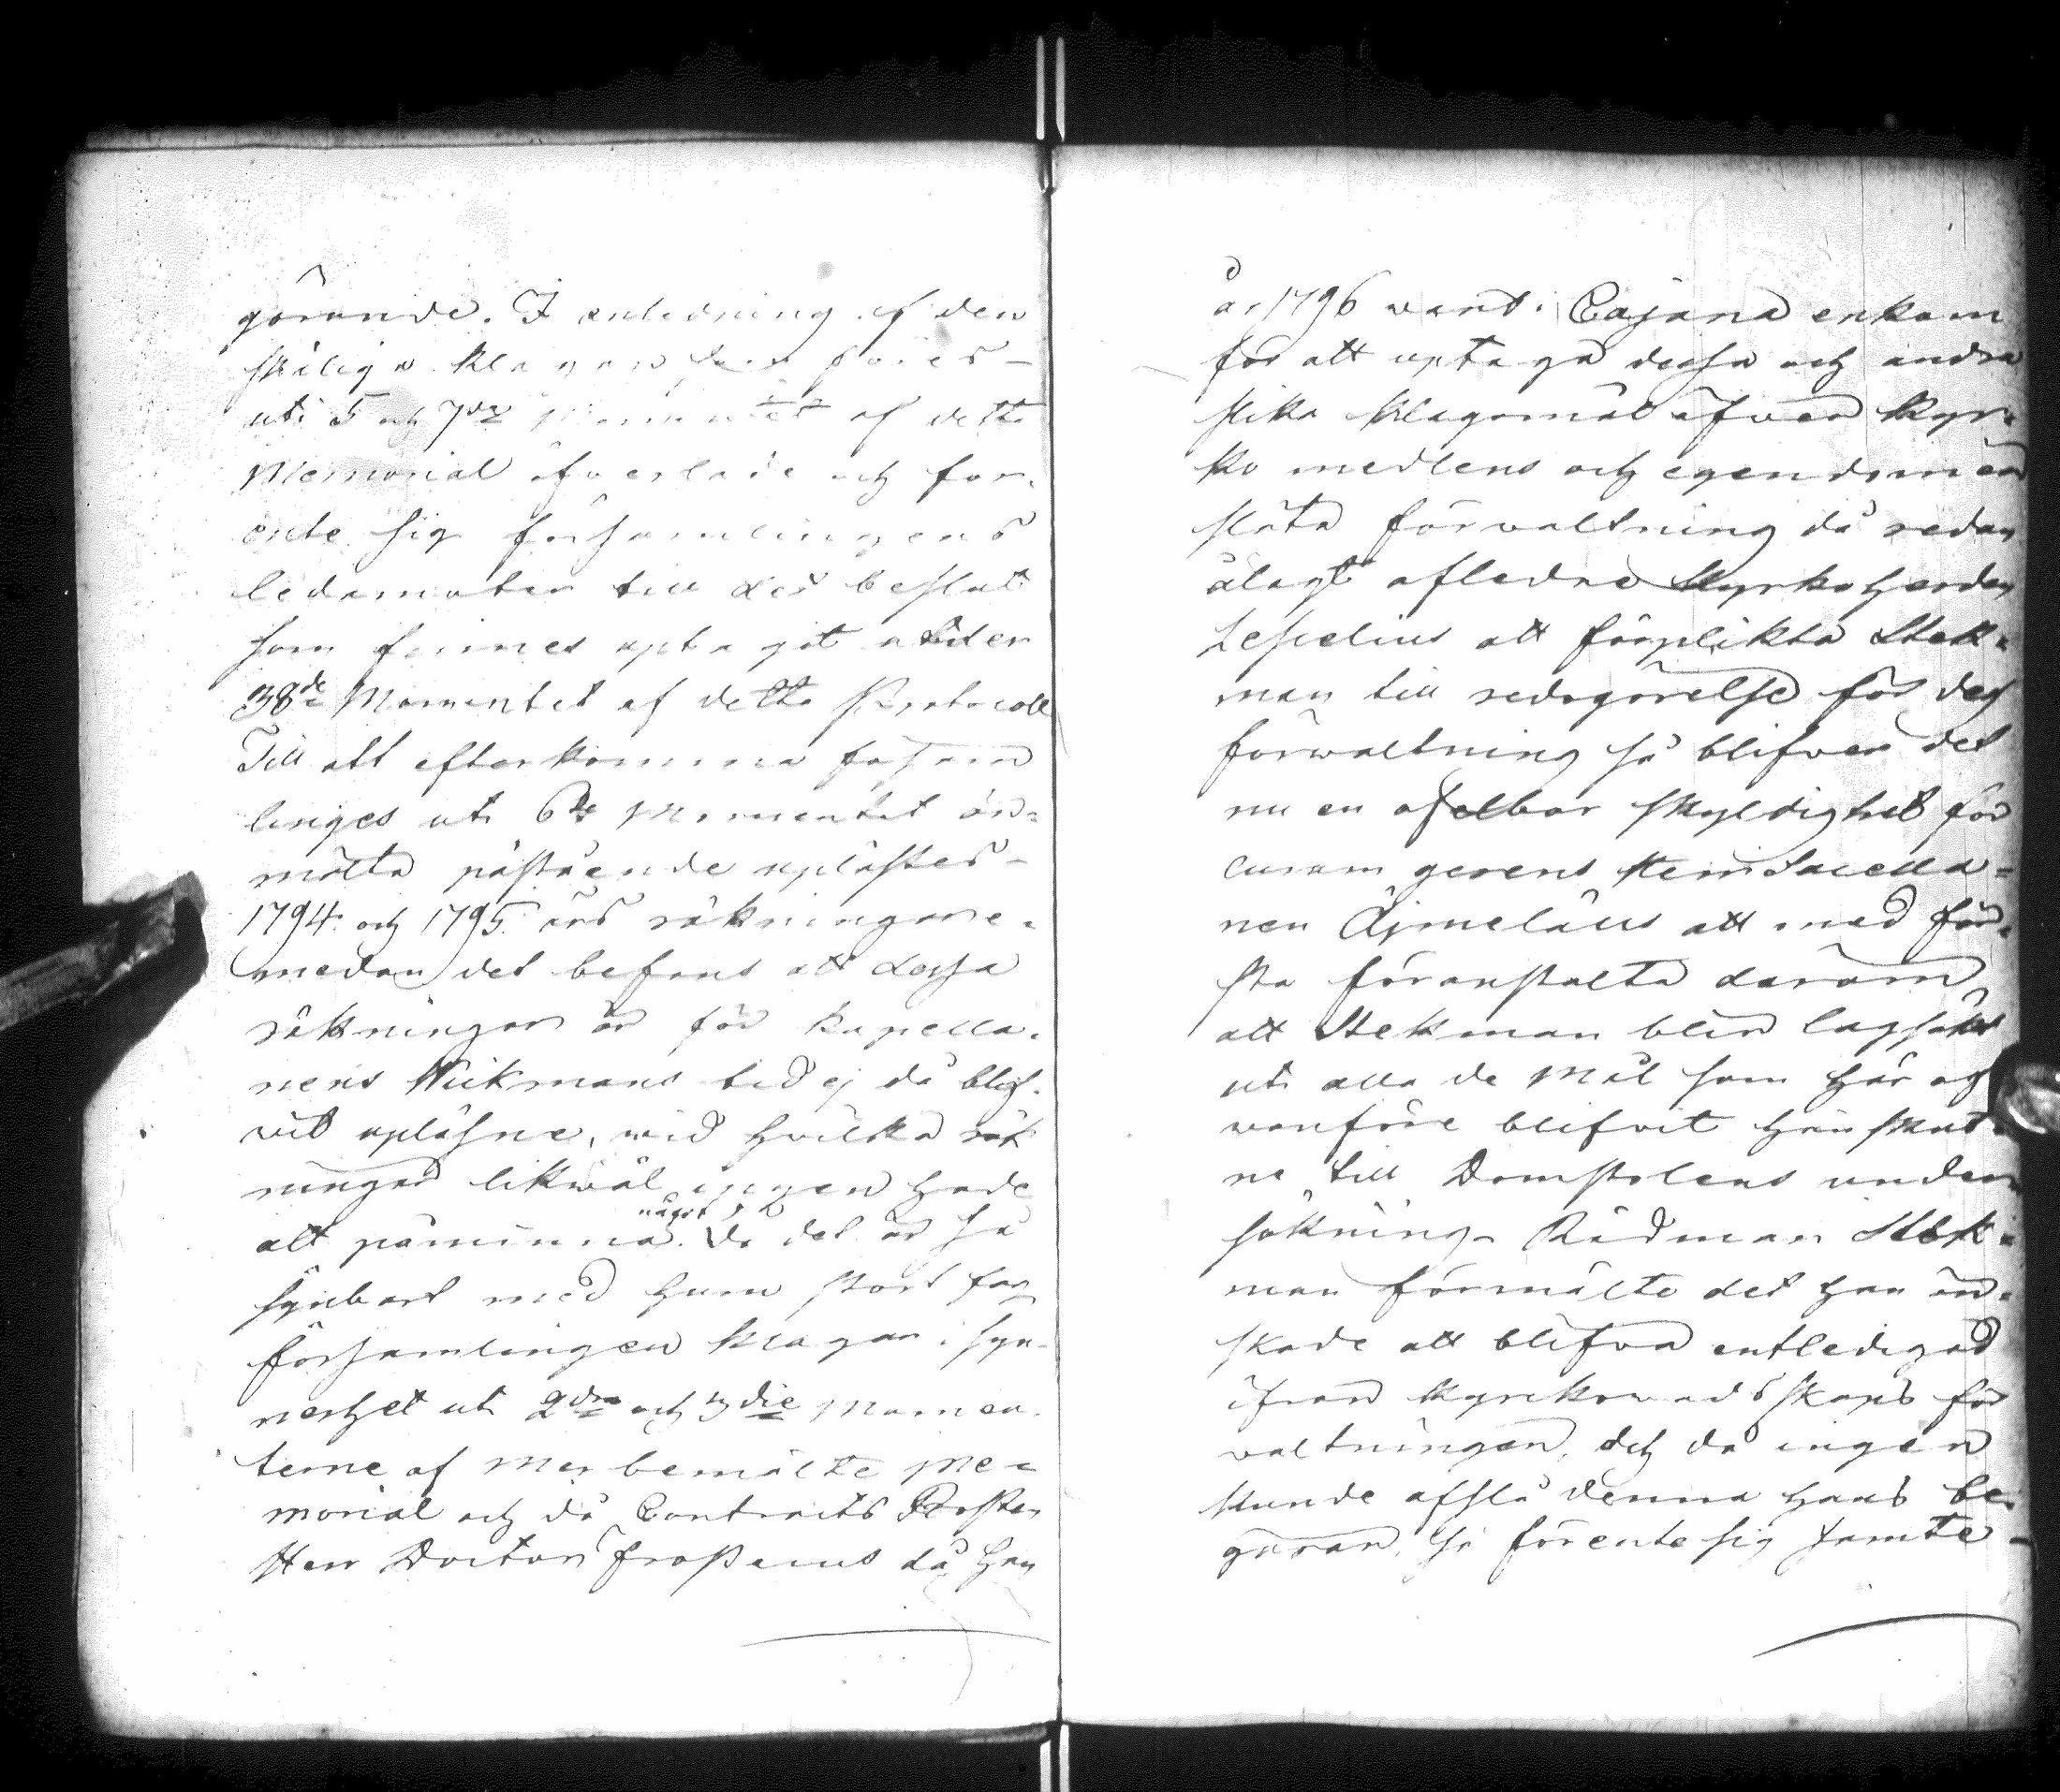 görande. I anledning af den
skäliga klagan som föres
uti 5 och 7de Momentet af detta
Memorial öfverlade och för-
ente sig församlingens
ledamöter till det beslut
som finnes uptagit under
38de Momentet af detta Protocoll
Till att efterkomma församl
linges uti 6te Momentet an-
mälta påstående uplästes
1794 och 1795 års räkningar e-
medan det befans att dessa
räkningar än för kapella-
nens Wickmans tid ej då blif-
vit upläsne, wid hvilka räk
ningar likwäl ingen hade
något
att påminna. Då det är så
synbart med hum stort fog
församlingen klagar i syn-
nerhet uti 2dra och 3die Momen-
terne af merbemälte Me-
morial och då Contracts Prosten
Herr Doctor Frosterus då han
år 1796 warit i Cajana enkom
för att uptaga dessa och andra
slika klagomål öfver kyr-
ko medlens och egendomens
släta förwaltning då redan
ålagt afledne Kyrkoherden
Lesselius att förplikta Stek-
man till redogörelse för dess
förwaltning så blifver det
nu en ofelbar skyldighet för
curam gerens Herr Sacella-
nen Äjmelæus att med för-
sta föranstalta därom
att Stekman blir lagsökt
uti alla de Mål som här of
wanföre blifvit hänskut-
ne till Domstolens under
sökning. Rådman Stek-
man förmälte det han ön-
skade att blifva entledigad
ifrån kyrkowärdskaps för
valtningen, och då ingen
kunde afslå denna hans be-
gäran, så förente sig samte-